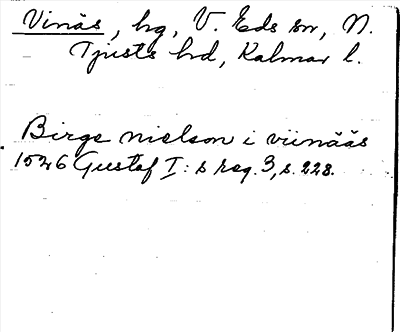 Vinäs, hg, V. Eds sn, N.
Tjusts hd, Kalmar l.
Birge nielson i viinääs
1526 Gustaf I:s reg. 3, s. 228.